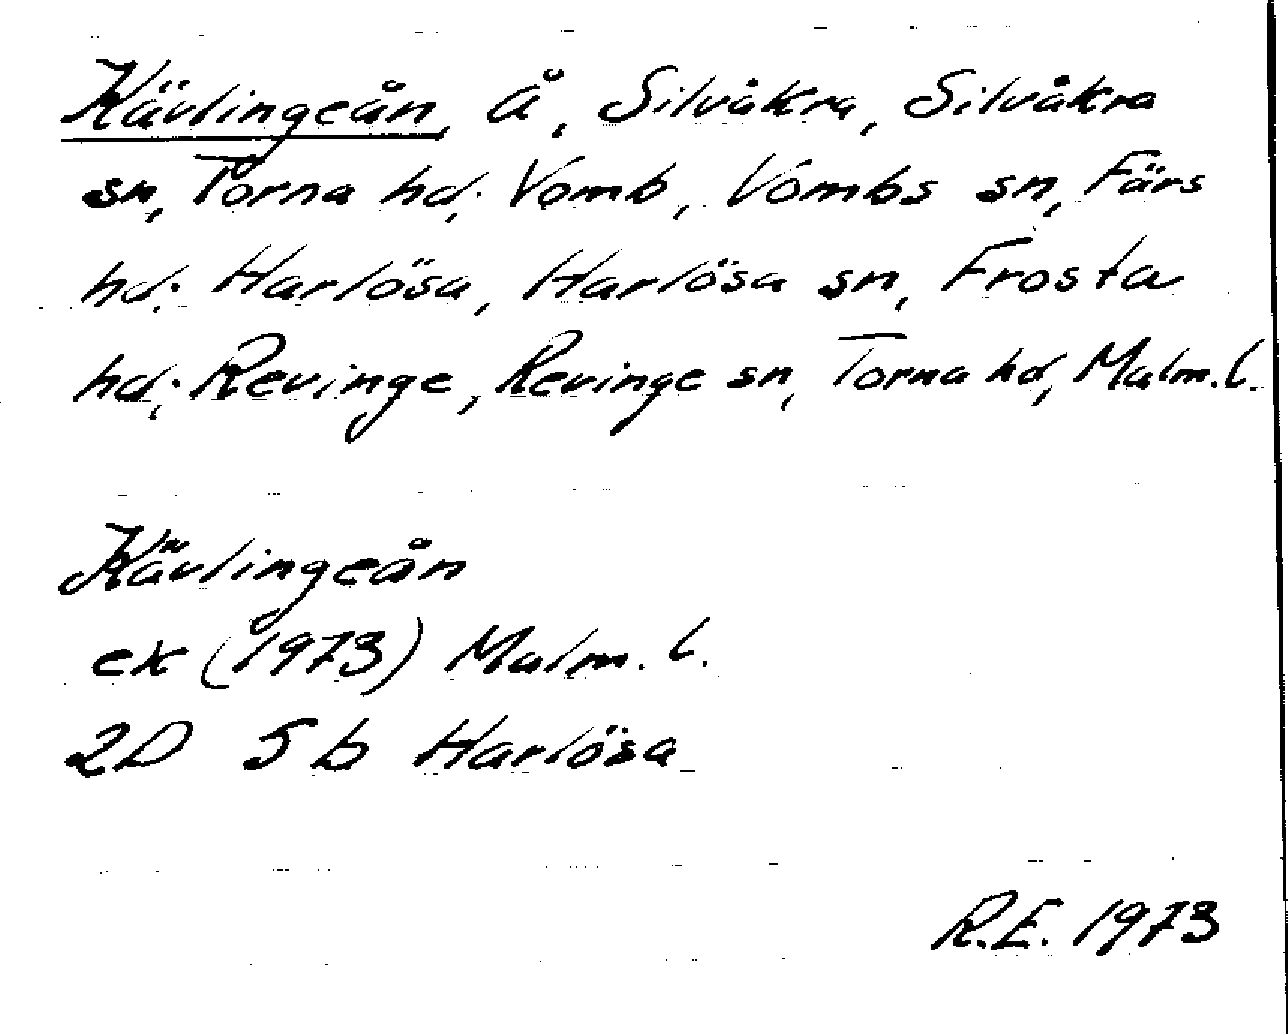 Kävlingeån, Å, Silvåkra, Silvåkra
sn, Torna hd; Vomb, Vombs sn, Färs
hd; Harlösa, Harlösa sn, Frosta
hd; Revinge, Revinge sn, Torna hd, Malm. l.
Kävlingeån
ek (1973) Malm. l.
2D 5 b Harlösa
R.E. 1973